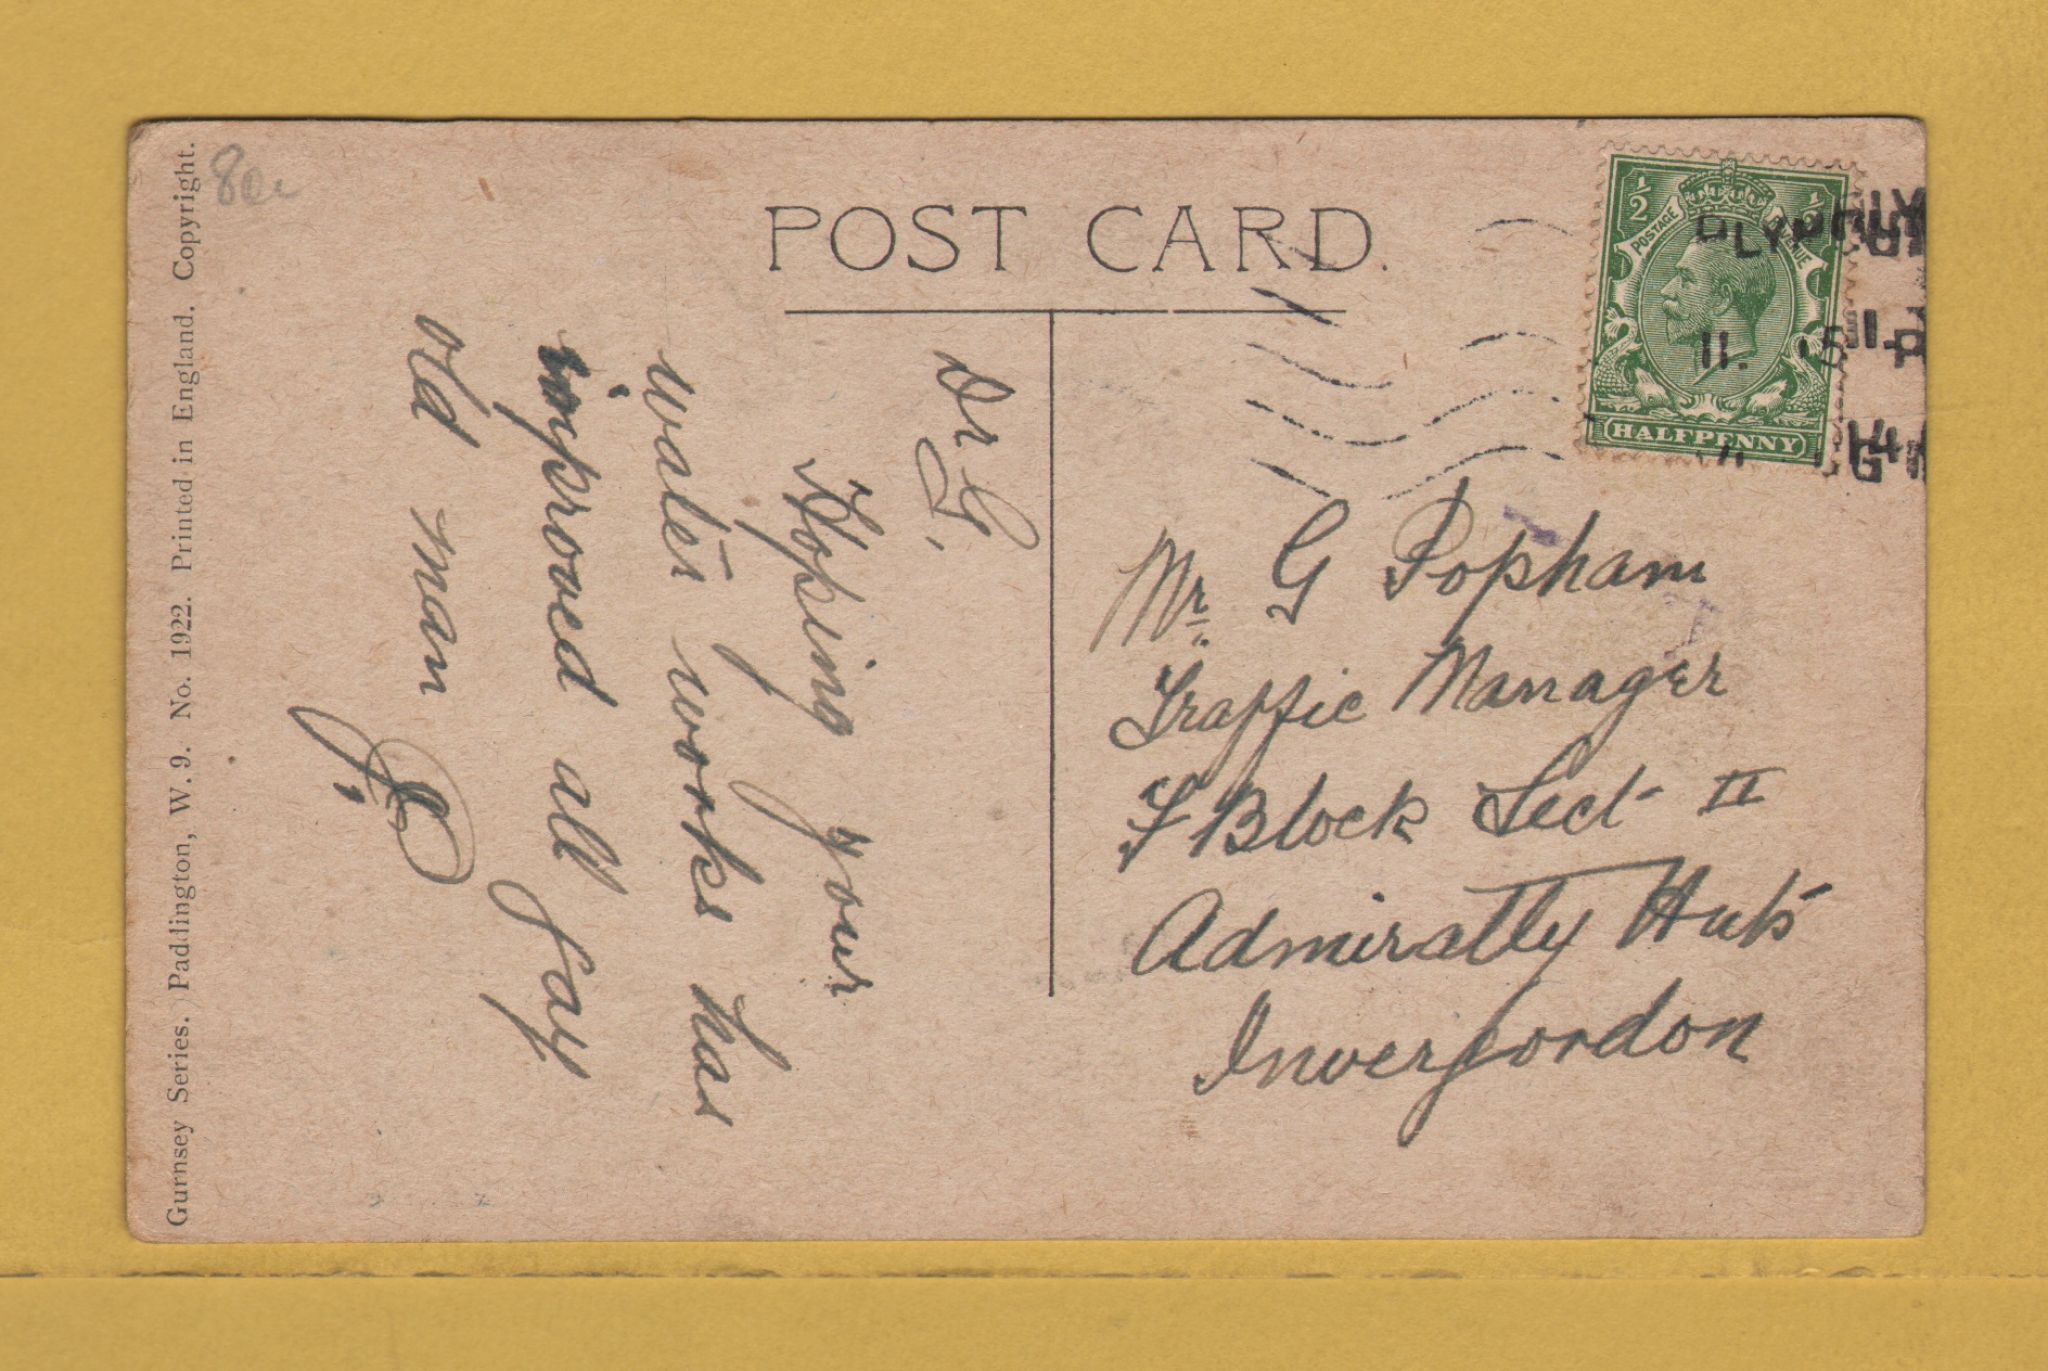 POST CARD.
Gurnsey Series. Paddington, W. 9. No. 1922. Printed in England. Copyright.
Dr G,
Hoping your
water works has
improved all fay
old man
½ ½
POSTAGE REVENUE
HALFPENNY
Mr. G Popham
Traffic Manager
F Block Sect II
Admiralty Huts
Invergordon